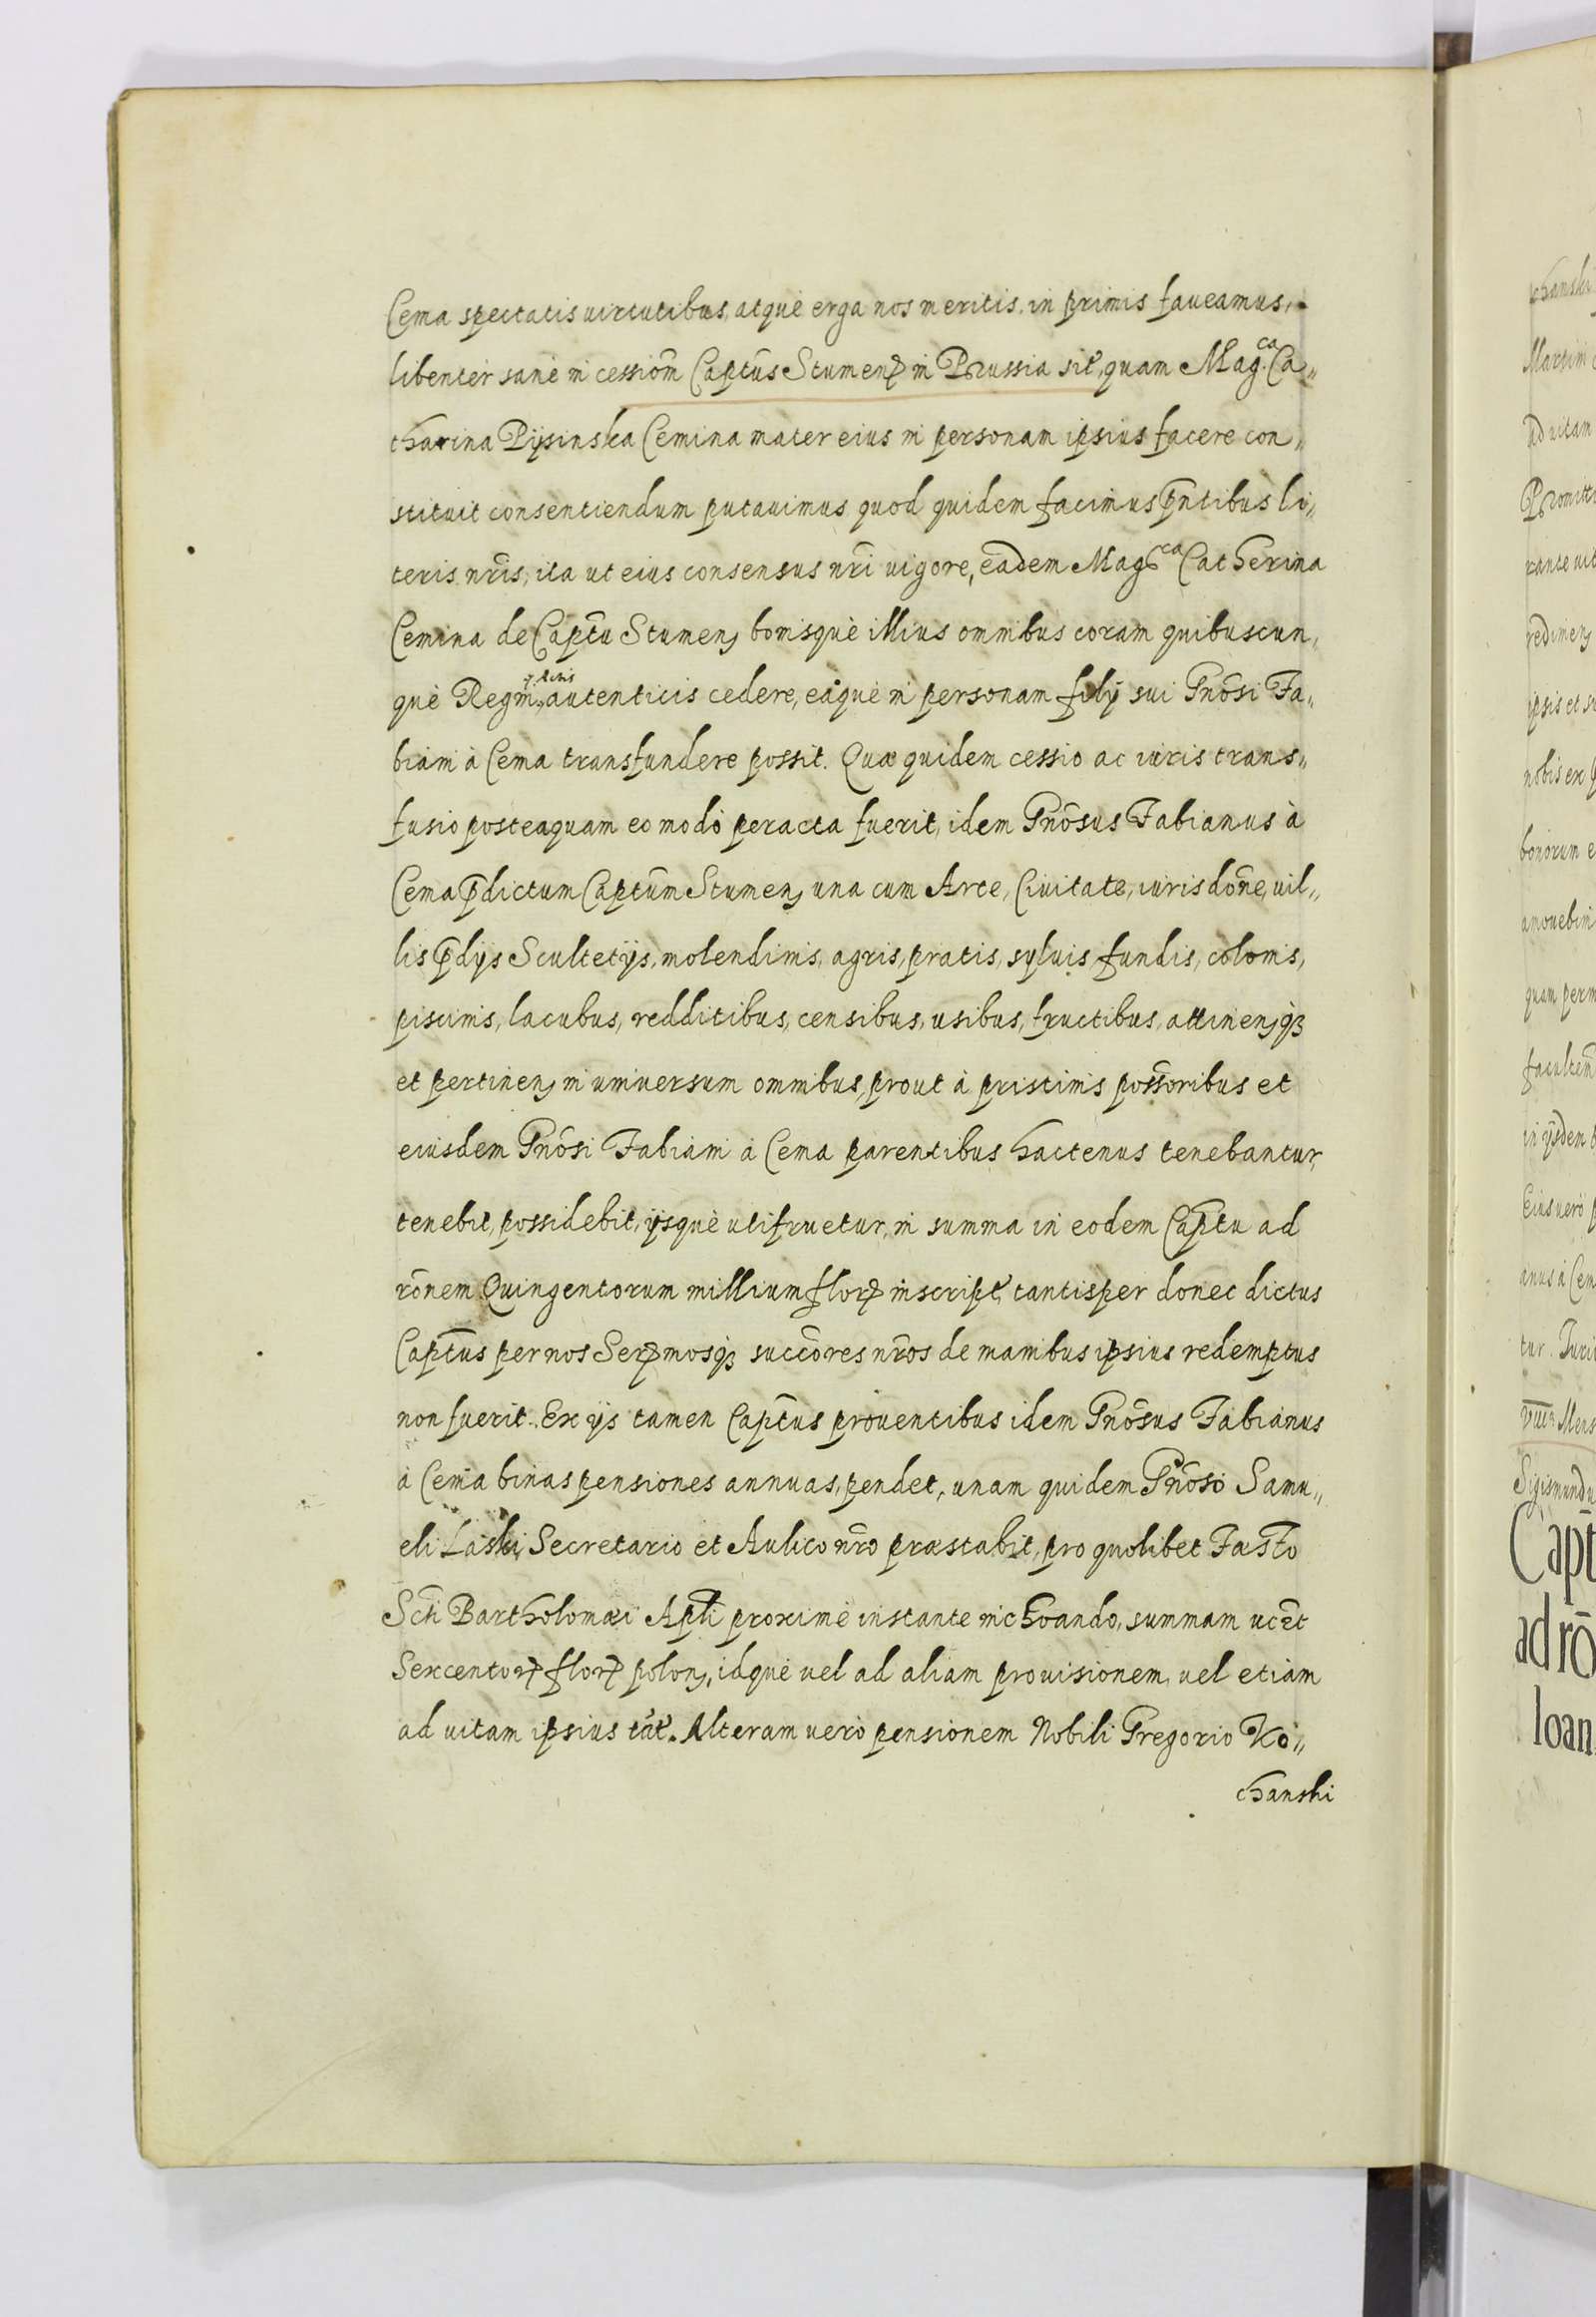 Cema spectatis uirtutibus, atquè erga nos meritis in primis faveamus,
libenter sanè in cessiom̃ Capt̃us Stumen̄ in Prussia sit̃, quam Mag.ca Ca„
tharina Pijsinska Cemina mater eius in personam ipsius facere con„
stituit consentiendum putauimus quod quidem facimus p̃ntibus li„
teris nr̃is, ita ut eius consensus nr̃i uigore, eadem Mag.ca Catherina
Cemina de Capt̃u Stumen, bonisquè illius omnibus coram quibuscun„
què Regni, autenticis cedere, eaquè in personam filÿ sui Gnõsi Fa„
biani à Cema transfundere possit. Quæ quidem cessio ac iuris trans„
fusio posteaquam eo modo peracta fuerit, idem Gnõsus Fabianus à
Cema p̃dictum Capt̃um Stumen, una cum Arce, Ciuitate, iurisdõne, uil„
lis p̃dijs Scultetijs, molendinis, agris, pratis, syluis fundis, colonis,
piscinis, lacubus, redditibus, censibus, usibus, fructibus, attinen, qꝫ
et pertinen, in uniuersum omnibus, prout à pristinis poss̃oribus et
eiusdem Gnõsi Fabiani à Cema parentibus hactenus tenebantur,
tenebit, possidebit, ijsquè utifruetur, in summa in eodem Capt̃u ad
rõnem Quingentorum millium flor̄ inscript̃, tantisper donec dictus
Capt̃us per nos Ser̄mosqꝫ succõres nr̃os de manibus ipsius redemptus
non fuerit. Ex ijs tamen Capt̃us prouentibus idem Gnõsus Fabianus
à Cema binas pensiones annuas, pendet, unam quidem Gnõso Samu„
eli Laski, Secretario et Aulico nr̃o præstabit, pro quolibet Fæsto
Scti Bartholomæi Apl̃i proximè instante inchoando, summam ucz̃t
Sexcentor̄ flor̄ polon, idquè uel ad aliam prouisionem, uel etiam
ad uitam ipsius tñt̃. Alteram uerò pensionem Nobili Gregorio Ko„
chanski
chanski
Martini
ad uitam
redimen,
ipsis et
nobis ex
bonorum
quam
in ijsdem
Eius uerò
anus à Cem
tur.
Sigismundu
Capt
ad rõ
Ioan